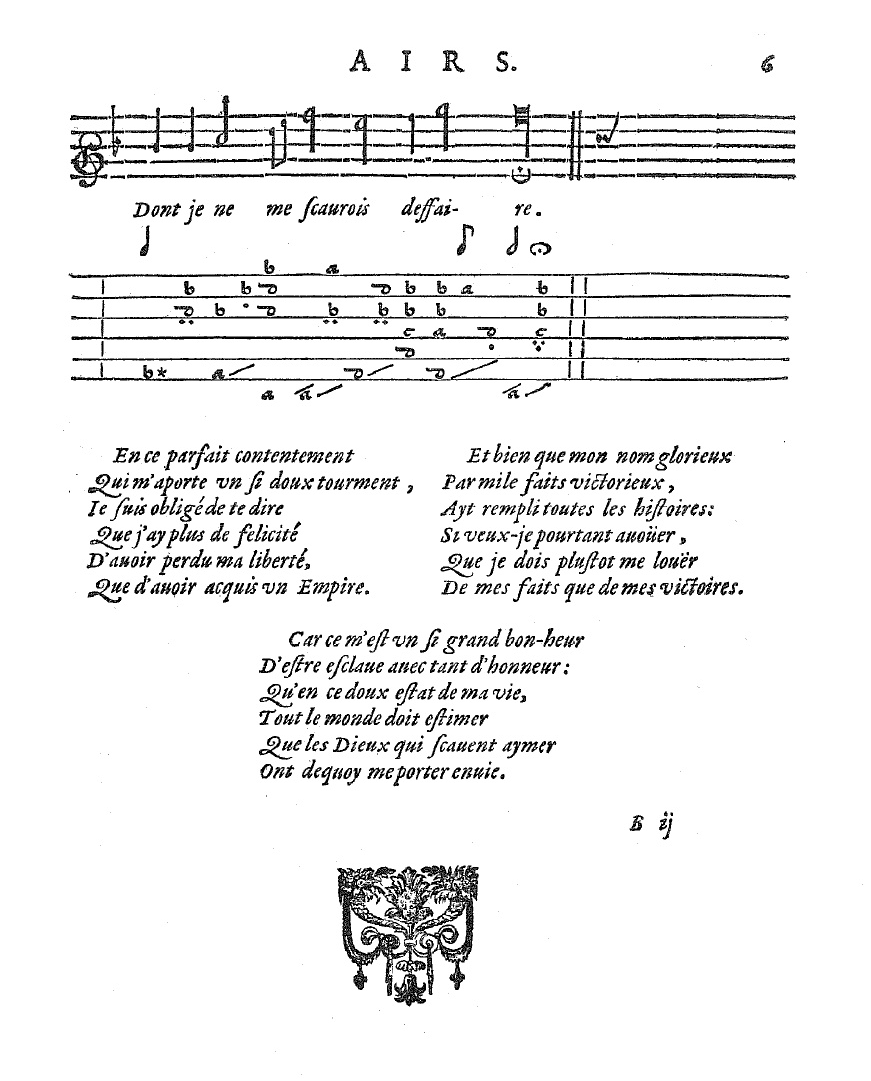 AIRS. 6
Dont je ne me ſcaurois deffai- re.
b a
b b d d b b a b
d b d b b b b b
c a d c
d
b* a d d
a a a
En ce parfait contentement
Qui m'aporte vn ſi doux tourment,
Ie ſuis obligé de te dire
Que j'ay plus de felicité
D'auoir perdu ma liberté,
Que d'auoir acquis vn Empire.
Et bien que mon nom glorieux
Par mile faits victorieux,
Ayt rempli toutes les hiſtoires:
Si veux-je pourtant auoüer,
Que je dois pluſtot me louër
De mes faits que de mes victoires.
Car ce m'eſt vn ſi grand bon-heur
D'eſtre eſclaue auec tant d'honneur:
Qu'en ce doux eſtat de ma vie,
Tout le monde doit eſtimer
Que les Dieux qui ſcauent aymer
Ont dequoy me porter enuie.
B ij